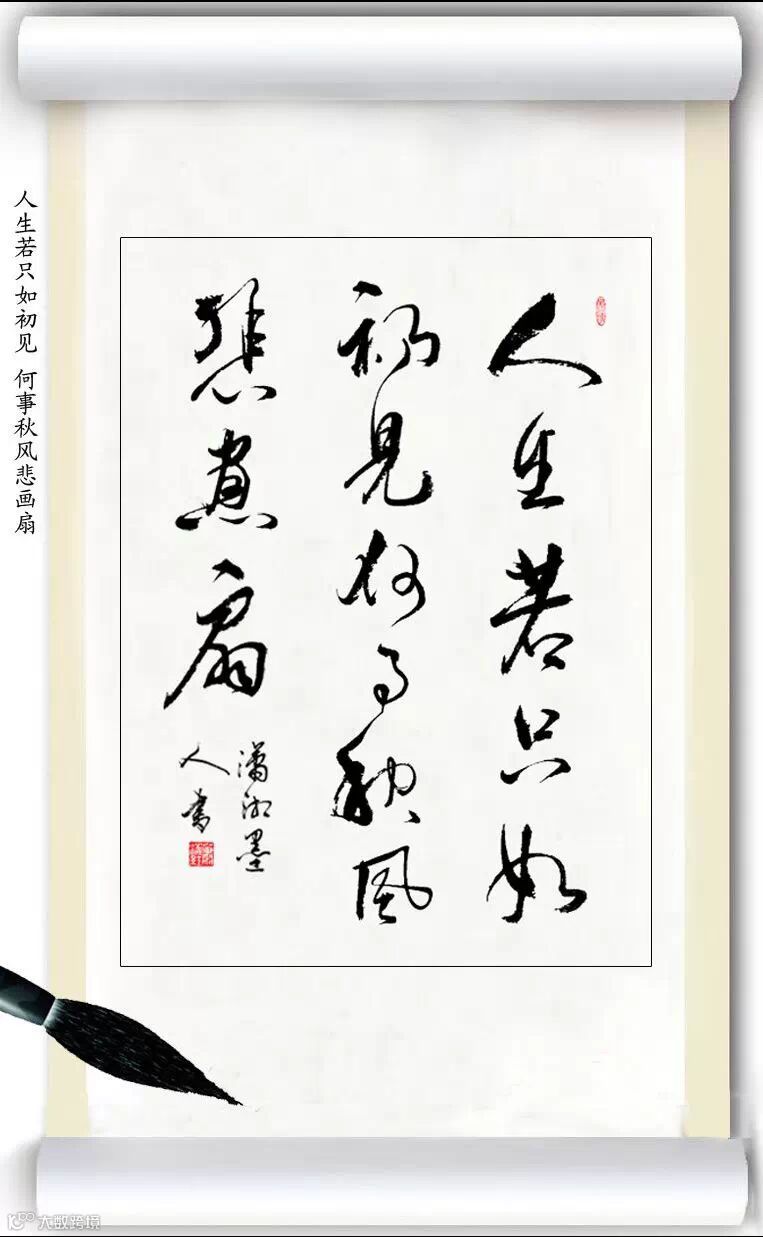 人生若只如
初見何事秋風
悲畫扇
瀟湘墨
人書
人生若只如初见 何事秋风悲画扇
大数跨境